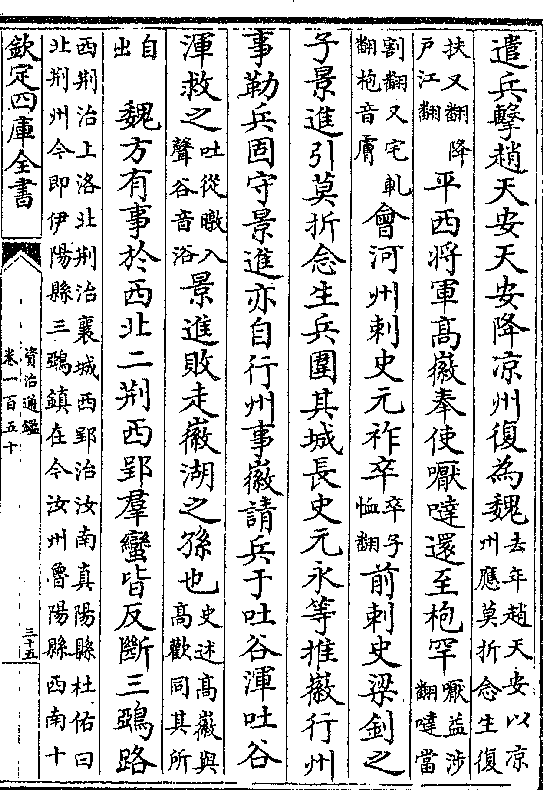 遣兵擊趙天安天安降凉州復為魏去年趙天安以凉州應莫折念生復
扶又翻降户江翻平西將軍髙徽奉使嚈噠還至枹罕嚈益涉翻噠當
割翻又宅軋翻枹音膚會河州刺史元祚卒卒子恤翻前刺史梁釗之
子景進引莫折念生兵圍其城長史元永等推徽行州
事勒兵固守景進亦自行州事徽請兵于吐谷渾吐谷
渾救之吐從暾入聲谷音浴景進敗走徽湖之孫也史述髙徽與髙歡同其所
自出魏方有事於西北二荆西郢羣蠻皆反斷三鵶路
西荆治上洛北荆治襄城西郢治汝南真陽縣杜佑曰
北荆州今即伊陽縣三鵶鎮在今汝州魯陽縣西南十
欽定四庫全書
資治通鑑
卷一百五十
三十五